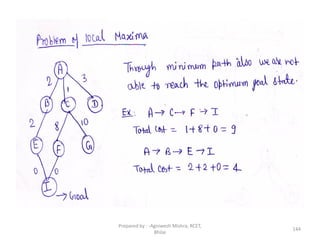 Problem of local Maxima
A
2
1
3
B
C
D
2
8
10
E
F
G
0
0
I
→ Goal
Through minimum path also we are not
able to reach the optimum goal state.
Ex: A → C → F → I
Total Cost = 1+8+0 = 9
A → B → E → I
Total Cost = 2+2+0 = 4
Prepared by : -Agniwesh Mishra, RCET,
Bhilai
144